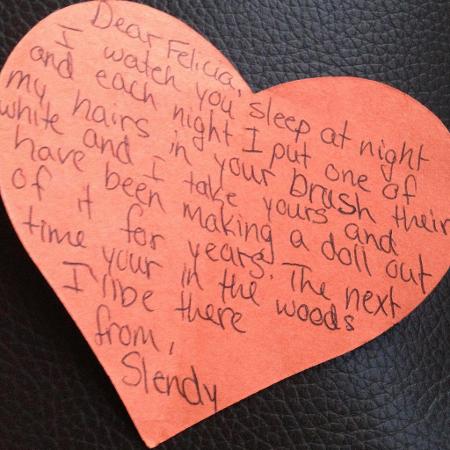 Dear Felicia,
I watch you sleep at night
and each night I put one of
my hairs in your brush their
white and I take yours and
have been making a doll out
of it for years. The next
time your in the woods
I'll be there
from,
Slendy